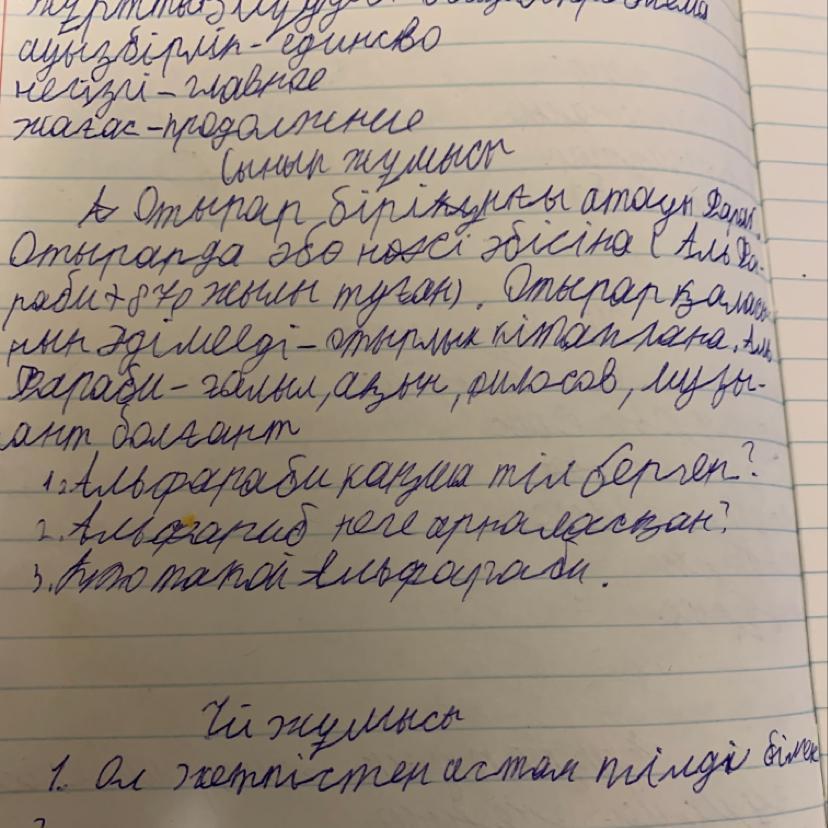 ауызбірлік - единсво
негізгі - главное
жағас - продолжение
Сынып жұмысы
Отырар бірікұнғы атауы Фараб.
Отырарда әбо нәсі әбісіна (Аль Фа-
раби + 870 жылы туған). Отырар қаласы-
нын әдімегді - отырлық кітапхана. Аль
Фараби - ғалыл, ақын, филосов, музы-
ант болғант
1. Альфараби қанша тіл берген?
2. Альфариб неге орналасқан?
3. Кто такой Альфараби.
Үй жұмысы
1. Ол жетпістен астам тілді білген
2